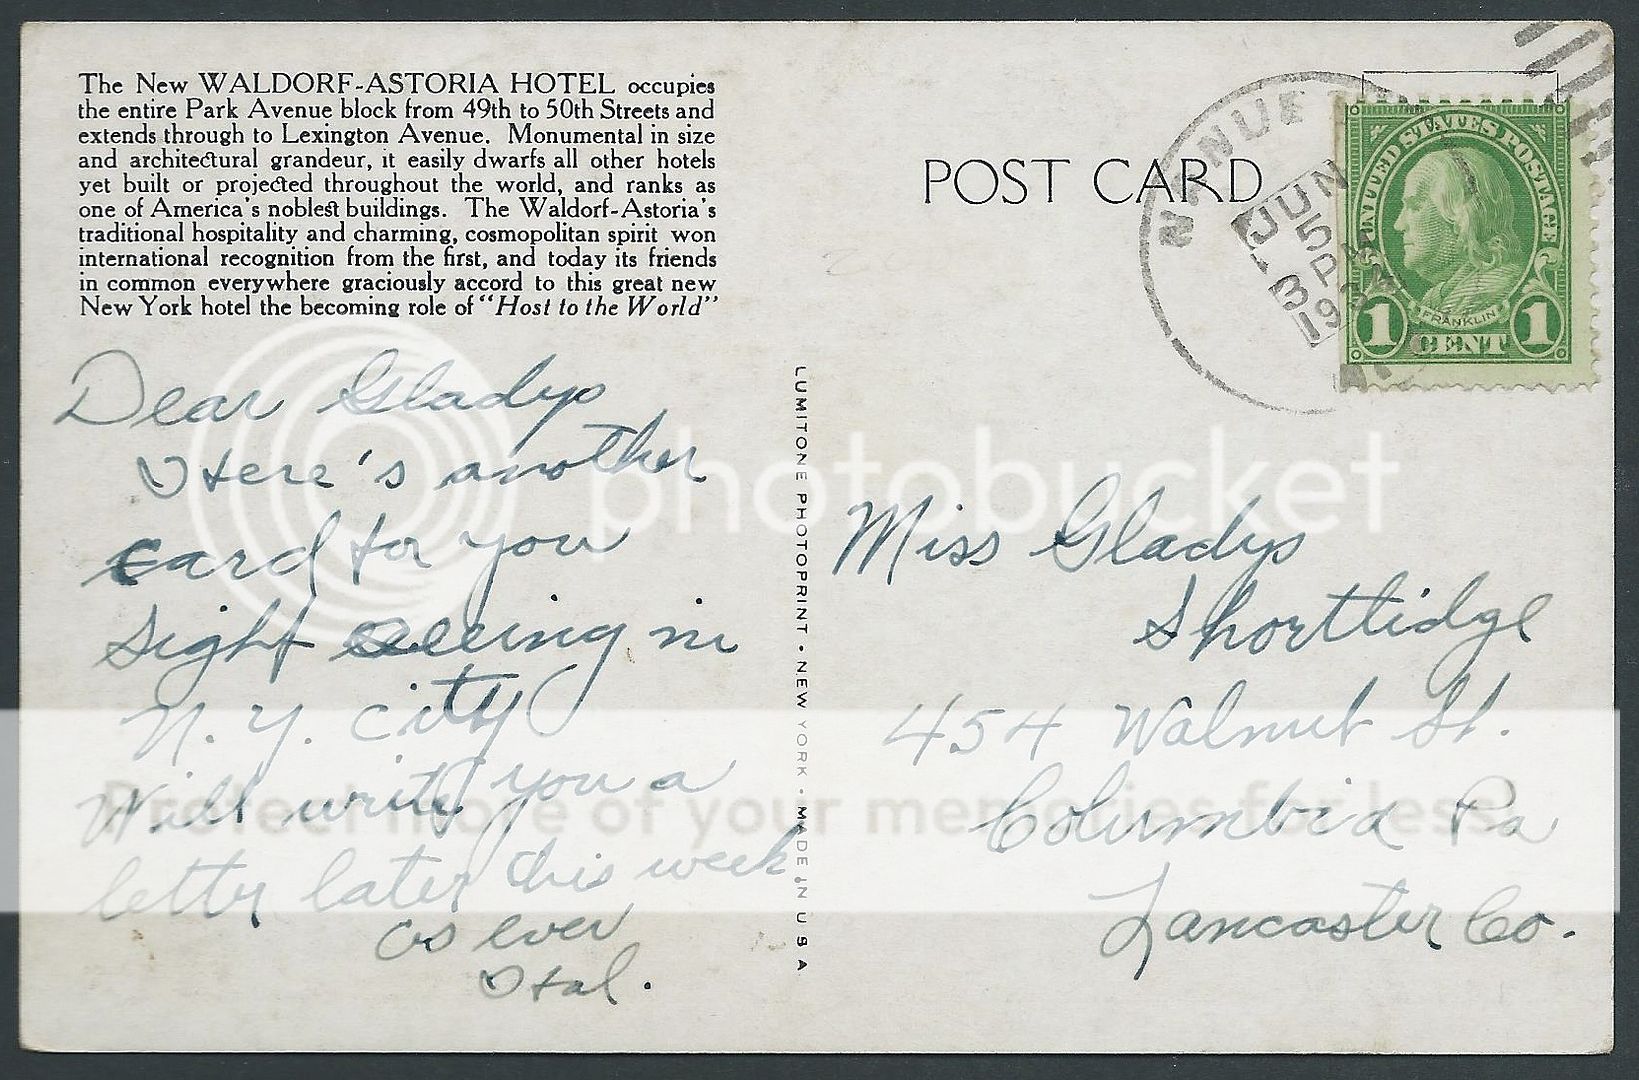 The New WALDORF-ASTORIA HOTEL occupies
the entire Park Avenue block from 49th to 50th Streets and
extends through to Lexington Avenue. Monumental in size
and architectural grandeur, it easily dwarfs all other hotels
yet built or projected throughout the world, and ranks as
one of America's noblest buildings. The Waldorf-Astoria's
traditional hospitality and charming, cosmopolitan spirit won
international recognition from the first, and today its friends
in common everywhere graciously accord to this great new
New York hotel the becoming role of "Host to the World"
Dear Gladys
Here's another
card for you
sight seeing in
N. Y. City
Will write you a
letter later this week
as ever
Hal.
LUMITONE PHOTOPRINT • NEW YORK • MADE IN U S A
POST CARD
JUN
5
3 PM
UNITED STATES POSTAGE
FRANKLIN
1 CENT 1
Miss Gladys
Shortlidge
454 Walnut St.
Columbia Pa
Lancaster Co.
photobucket
Protect more of your memories for less!